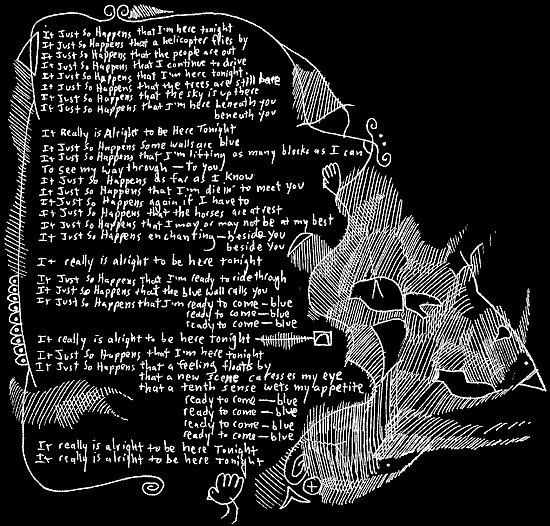 It Just So Happens that I'm here tonight
It Just So Happens that a helicopter flies by
It Just So Happens that the people are out
It Just So Happens that I continue to drive
It Just So Happens that I'm here tonight
It Just So Happens that the trees are still bare
It Just So Happens that the sky is up there
It Just So Happens that I'm here beneath you
beneath you
It Really is Alright to Be Here Tonight
It Just So Happens some walls are blue
It Just So Happens that I'm lifting as many blocks as I can
To see my way through — to you
It Just So Happens as far as I know
It Just So Happens that I'm diein' to meet you
It Just So Happens again if I have to
It Just So Happens that the horses are at rest
It Just So Happens that I may or may not be at my best
It Just So Happens enchanting — beside you
beside you
It really is alright to be here tonight
It Just So Happens that I'm ready to ride through
It Just So Happens that the blue wall calls you
It Just So Happens that I'm ready to come — blue
ready to come — blue
ready to come — blue
It really is alright to be here tonight
It Just So Happens that I'm here tonight
It Just So Happens that a feeling floats by
that a new scene caresses my eye
that a tenth sense wets my appetite
ready to come — blue
ready to come — blue
ready to come — blue
ready to come — blue
It really is alright to be here Tonight
It really is alright to be here Tonight